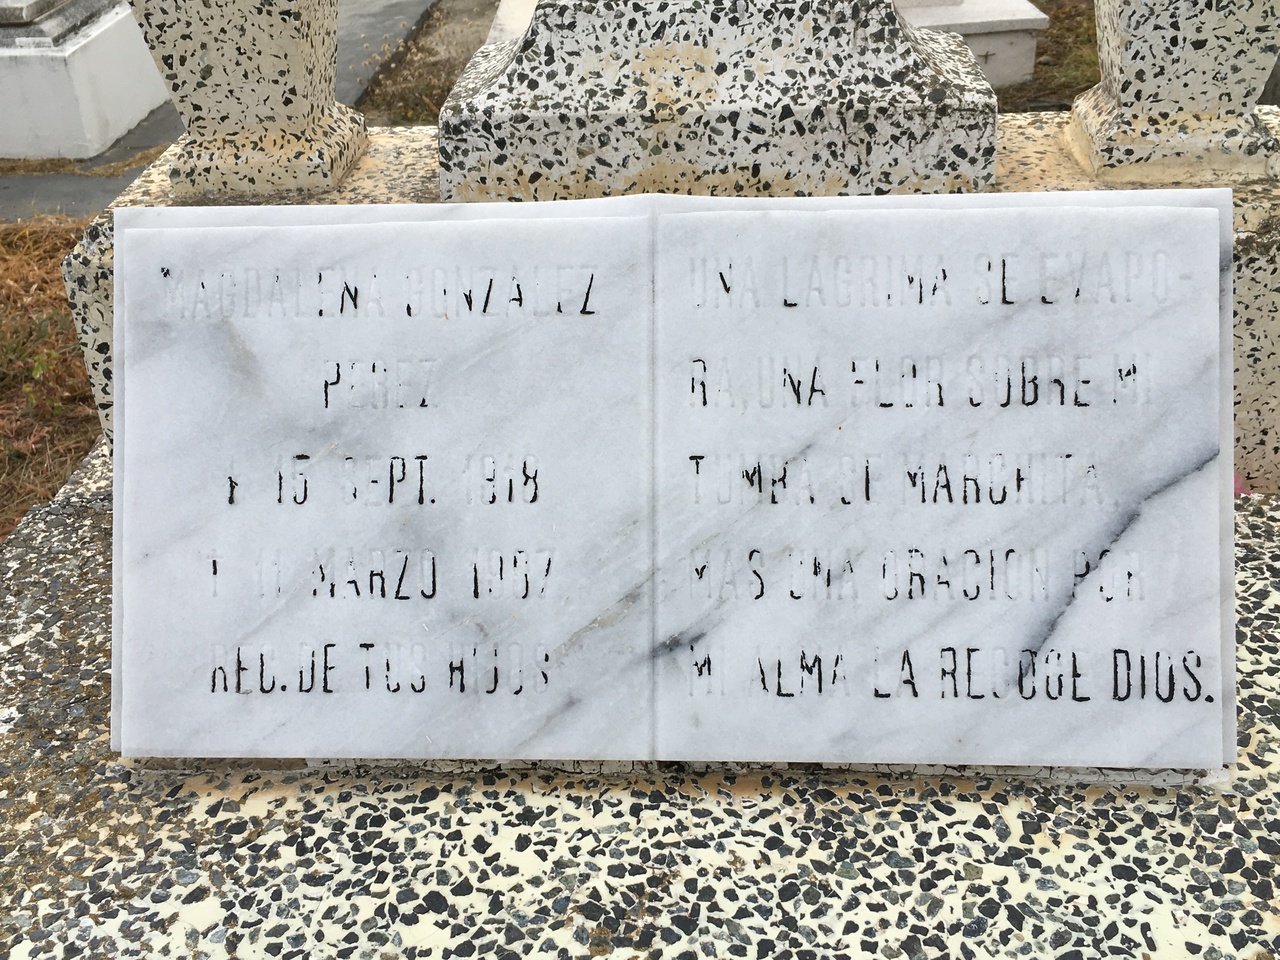 MAGDALENA GONZALEZ
PEREZ
15 SEPT. 1918
MARZO
REC. DE TUS HIJOS
UNA LAGRIMA SE EVAPO-
RA, UNA FLOR SOBRE MI
TUMBA SE MARCHITA.
MAS UNA ORACION POR
MI ALMA LA RECOGE DIOS.